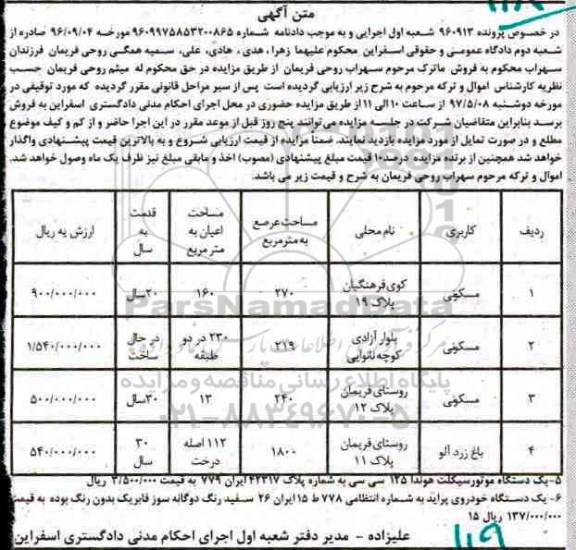 متن آگهی
در خصوص پرونده ۹۶۰۹۱۳ شعبه اول اجرایی و به موجب دادنامه شماره ۹۶۰۹۹۷۵۸۵۳۲۰۰۸۶۵ مورخه ۹۶/۰۹/۰۴ صادره از
شعبه دوم دادگاه عمومی و حقوقی اسفراین محکوم علیهما زهرا، هدی، هادی، علی، سمیه همگی روحی فریمان فرزندان
سهراب محکوم به فروش ماترک مرحوم سهراب روحی فریمان از طریق مزایده در حق محکوم له میثم روحی فریمان حسب
نظریه کارشناس اموال و ترکه مرحوم به شرح زیر ارزیابی گردیده است پس از سیر مراحل قانونی مقرر گردیده که مورد توقیفی در
مورخه دوشنبه ۹۷/۵/۰۸ از ساعت ۱۰ الی ۱۱ از طریق مزایده حضوری در محل اجرای احکام مدنی دادگستری اسفراین به فروش
برسد بنابراین متقاضیان شرکت در جلسه مزایده می‌توانند پنج روز قبل از موعد مقرر در این اجرا حاضر و از کم و کیف موضوع
مطلع و در صورت تمایل از مورد مزایده بازدید نمایند. ضمناً مزایده از قیمت ارزیابی شروع و به بالاترین قیمت پیشنهادی واگذار
خواهد شد همچنین از برنده مزایده ۱۰ درصد قیمت مبلغ پیشنهادی (مصوب) اخذ و مابقی مبلغ نیز ظرف یک ماه وصول خواهد شد.
اموال و ترکه مرحوم سهراب روحی فریمان به شرح و قیمت زیر می باشد.
ردیف کاربری نام محلی مساحت عرصه به مترمربع مساحت اعیان به متر مربع قدمت به سال ارزش به ریال
۱ مسکونی کوی فرهنگیان پلاک ۱۹ ۲۷۰ ۱۶۰ ۲۰سال ۹۰۰/۰۰۰/۰۰۰
۲ مسکونی بلوار آزادی کوچه نانوایی ۲۱۹ ۲۳۰ در دو طبقه در حال ساخت ۱/۵۴۰/۰۰۰/۰۰۰
۳ مسکونی روستای فریمان پلاک ۱۲ ۲۴۰ ۱۳ ۳۰سال ۵۰۰/۰۰۰/۰۰۰
۴ باغ زرد آلو روستای فریمان پلاک ۱۱ ۱۸۰۰ ۱۱۲ اصله درخت ۳۰ سال ۵۴۰/۰۰۰/۰۰۰
۵-یک دستگاه موتورسیکلت هوندا ۱۲۵ سی سی به شماره پلاک ۴۲۳۱۷ ایران ۷۷۹ به قیمت ۳/۵۰۰/۰۰۰ ریال
۶- یک دستگاه خودروی پراید به شماره انتظامی ۷۷۸ ط ۱۵ ایران ۲۶ سفید رنگ دوگانه سوز فابریک بدون رنگ بوده به قیمت
۱۳۷/۰۰۰/۰۰۰ ریال ۱۵
علیزاده - مدیر دفتر شعبه اول اجرای احکام مدنی دادگستری اسفراین
ParsNamadData
پایگاه اطلاع رسانی مناقصه و مزایده
۰۲۱-۸۸۳۴۹۶۷۰-۵